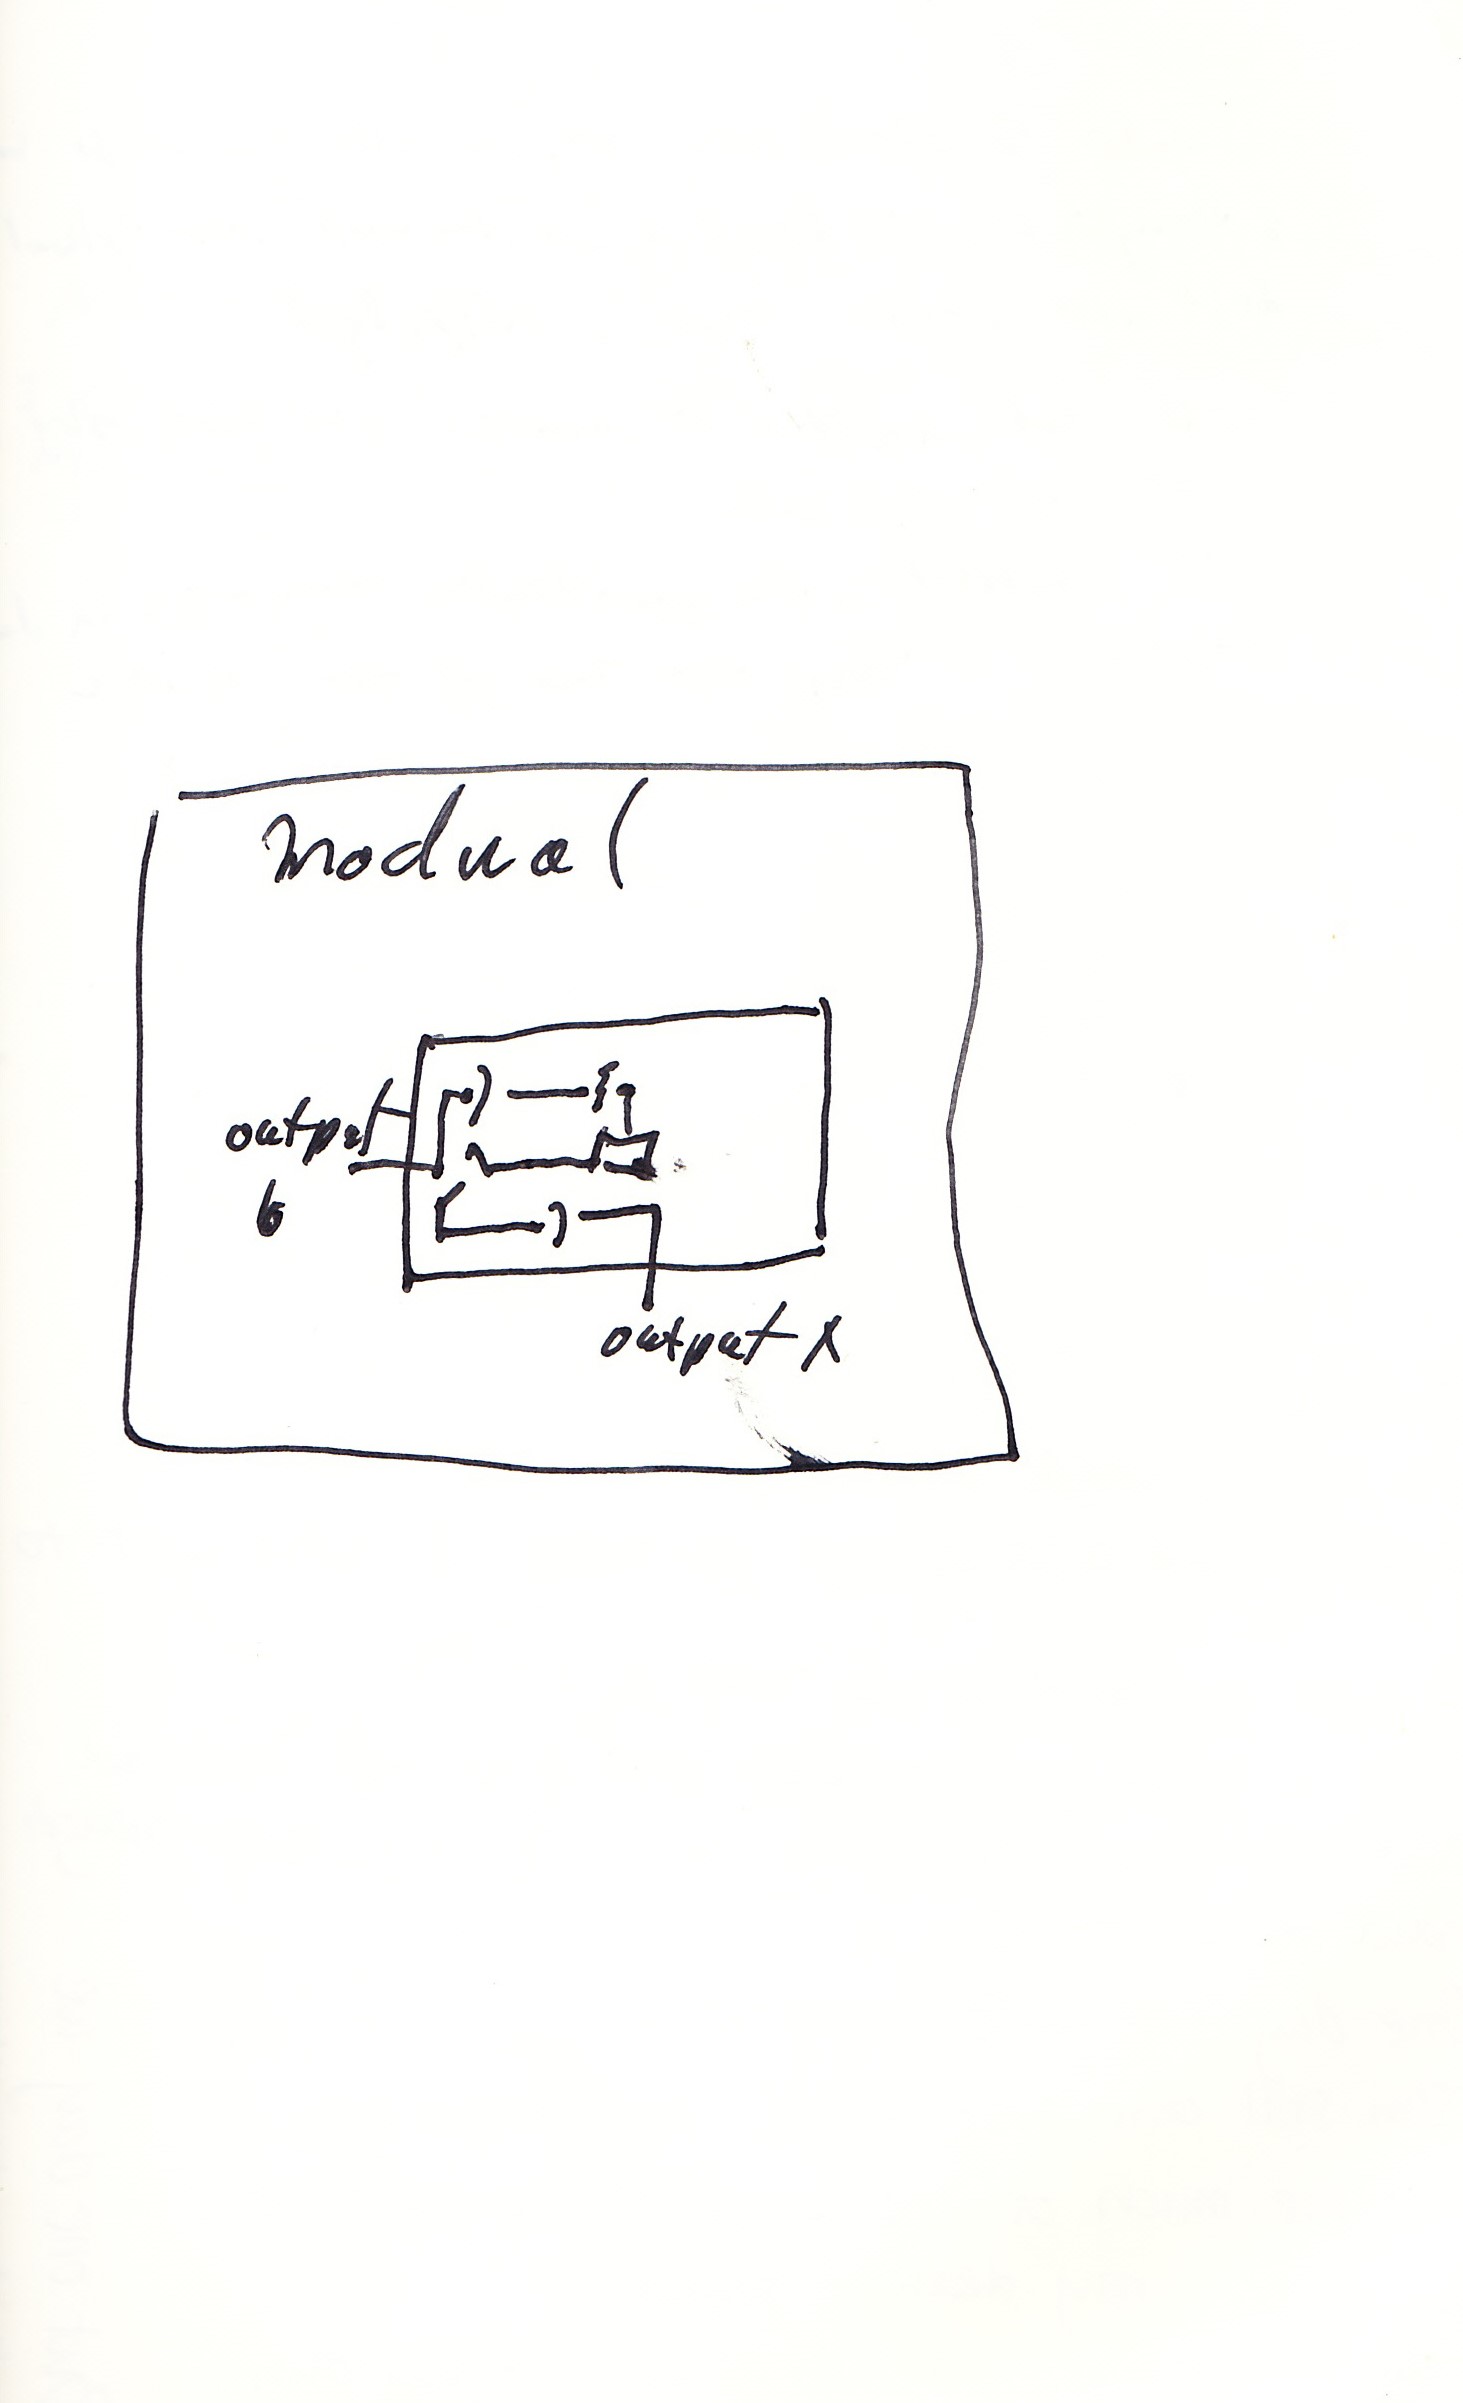 modual
output
6
output X